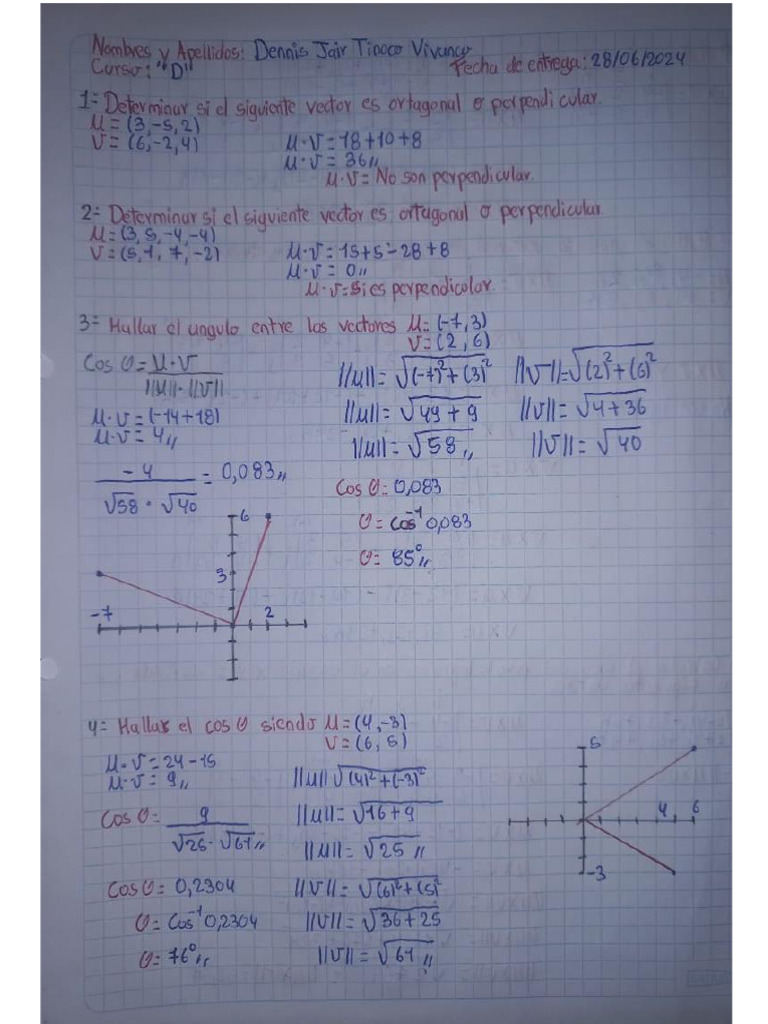 Nombres y Apellidos: Dennis Jair Tinoco Vivanco
Curso: "D"
Fecha de entrega: 28/06/2024
1= Determinar si el siguiente vector es ortagonal o perpendicular.
μ = (3,-5,2)
V = (6,-2,4)
μ·v = 18+10+8
μ·v = 36//
μ·v = No son perpendicular.
2= Determinar si el siguiente vector es ortagonal o perpendicular
μ = (3, 5, -4, -4)
V = (5, 1, 7, -2)
μ·v = 15+5-28+8
μ·v = 0//
μ·v = Si es perpendicolar.
3= Hallar el angulo entre los vectores μ = (-7,3)
V = (2,6)
Cos θ = μ·v / ||μ||·||v||
μ·v = (-14+18)
μ·v = 4//
-4 / √58 · √40 = 0,083//
||μ|| = √(-7)²+(3)²
||μ|| = √49+9
||μ|| = √58//
||V|| = √(2)²+(6)²
||v|| = √4+36
||v|| = √40
Cos θ = 0,083
θ = cos⁻¹ 0,083
θ = 85°//
6
3
-7
2
4= Hallar el cos θ siendo μ = (4,-3)
V = (6,5)
μ·v = 24-15
μ·v = 9//
Cos θ = 9 / √25·√61//
Cos θ = 0,2304
θ = Cos⁻¹ 0,2304
θ = 76°//
||μ|| √(4)²+(-3)²
||μ|| = √16+9
||μ|| = √25//
||V|| = √(6)²+(5)²
||V|| = √36+25
||V|| = √61//
5
4
6
-3